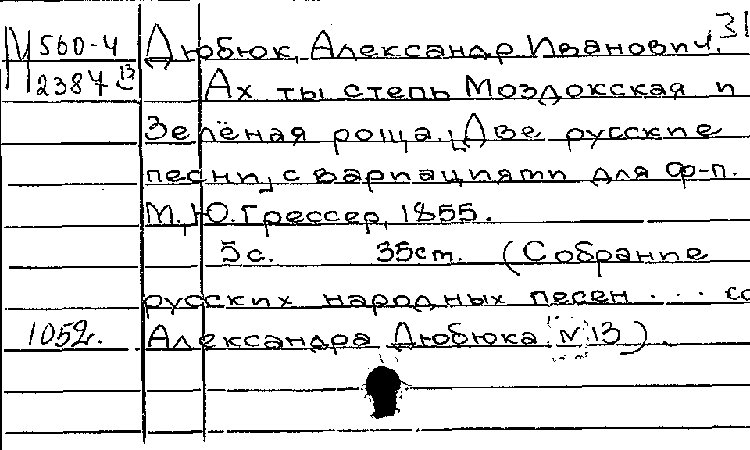 31
М 560-4 Дюбюк, Александр Иванович.
2387 13 Ах ты степь Моздокская и
Зелёная роща. [Две русские
песни, с вариациями для ф-п.
М., Ю. Грессер, 1855.
5 с. 35 cm. (Собрание
русских народных песен . . . со
1052. Александра Дюбюка № 13).